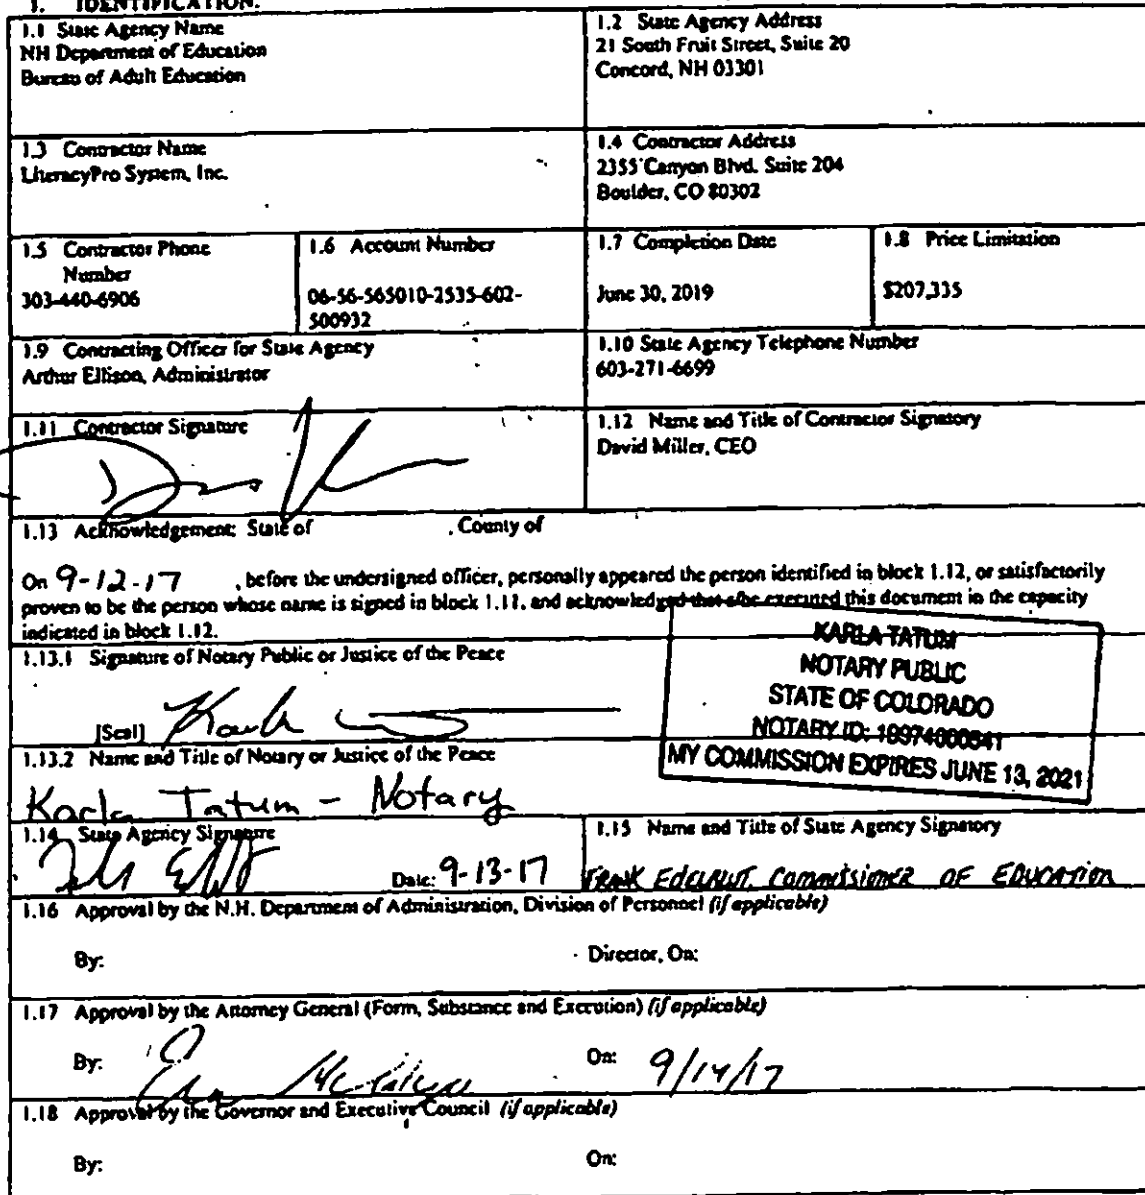 1. IDENTIFICATION.
1.1 State Agency Name
NH Department of Education
Bureau of Adult Education
1.2 State Agency Address
21 South Fruit Street, Suite 20
Concord, NH 03301
1.3 Contractor Name
LiteracyPro System, Inc.
1.4 Contractor Address
2355 Canyon Blvd. Suite 204
Boulder, CO 80302
1.5 Contractor Phone
Number
303-440-6906
1.6 Account Number
06-56-565010-2535-602-
500932
1.7 Completion Date
June 30, 2019
1.8 Price Limitation
$207,335
1.9 Contracting Officer for State Agency
Arthur Ellison, Administrator
1.10 State Agency Telephone Number
603-271-6699
1.11 Contractor Signature
1.12 Name and Title of Contractor Signatory
David Miller, CEO
1.13 Acknowledgement: State of , County of
On 9-12-17 , before the undersigned officer, personally appeared the person identified in block 1.12, or satisfactorily
proven to be the person whose name is signed in block 1.11, and acknowledged that s/he executed this document in the capacity
indicated in block 1.12.
1.13.1 Signature of Notary Public or Justice of the Peace
[Seal] Karla
KARLA TATUM
NOTARY PUBLIC
STATE OF COLORADO
NOTARY ID:
MY COMMISSION EXPIRES JUNE 13, 2021
1.13.2 Name and Title of Notary or Justice of the Peace
Karla Tatum - Notary
1.14 State Agency Signature
Date: 9-13-17
1.15 Name and Title of State Agency Signatory
FRANK EDELBLUT, COMMISSIONER OF EDUCATION
1.16 Approval by the N.H. Department of Administration, Division of Personnel (if applicable)
By: Director, On:
1.17 Approval by the Attorney General (Form, Substance and Execution) (if applicable)
By: On: 9/14/17
1.18 Approval by the Governor and Executive Council (if applicable)
By: On: